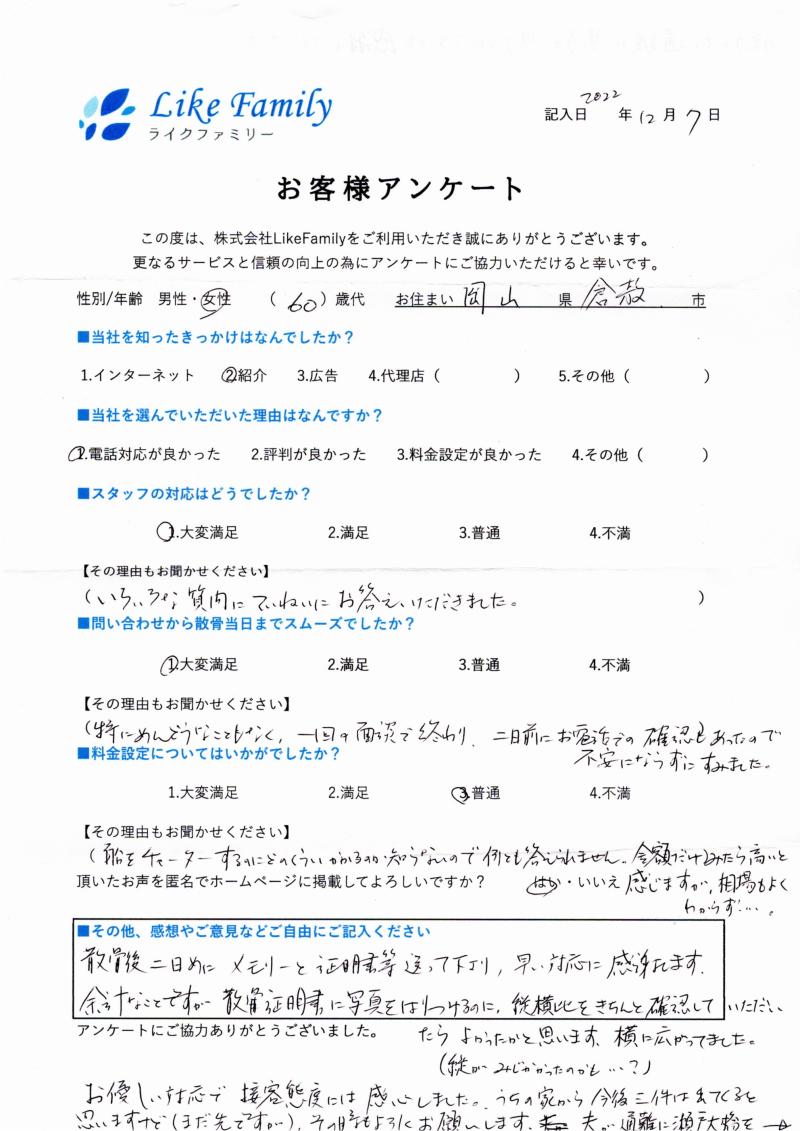 Like Family
ライクファミリー
記入日 2022 年 12 月 7 日
お客様アンケート
この度は、株式会社LikeFamilyをご利用いただき誠にありがとうございます。
更なるサービスと信頼の向上の為にアンケートにご協力いただけると幸いです。
性別/年齢 男性・女性 ( 60 ) 歳代 お住まい 岡山 県 倉敷 市
■当社を知ったきっかけはなんでしたか？
1.インターネット ②紹介 3.広告 4.代理店 ( ) 5.その他 ( )
■当社を選んでいただいた理由はなんですか？
1.電話対応が良かった 2.評判が良かった 3.料金設定が良かった 4.その他 ( )
■スタッフの対応はどうでしたか？
1.大変満足 2.満足 3.普通 4.不満
【その理由もお聞かせください】
(いろいろな質問にていねいにお答えいただきました。 )
■問い合わせから散骨当日までスムーズでしたか？
1.大変満足 2.満足 3.普通 4.不満
【その理由もお聞かせください】
(特にめんどうなこともなく、一回の面談で終わり、二日前にお電話での確認もあったので
不安にならずにすみました。
■料金設定についてはいかがでしたか？
1.大変満足 2.満足 3.普通 4.不満
【その理由もお聞かせください】
(船をチャーターするのにどのくらいかかるのか知らないので何とも答えられません。金額だけみたら高いと
頂いたお声を匿名でホームページに掲載してよろしいですか？ はい・いいえ 感じますが、相場もよく
わからず…。
■その他、感想やご意見などご自由にご記入ください
散骨後二日めにメモリーと証明書等送って下さり、早い対応に感謝します。
余計なことですが散骨証明書に写真をはりつけるのに、縦横比をきちんと確認していただい
アンケートにご協力ありがとうございました。 たらよかったかと思います。横に広がってました。
(縦がみじかかったのかも…？)
お優しい対応で接客態度には感心しました。うちの家から今後三件は出てくると
思いますけど(まだ先ですが)、その時もよろしくお願いします。夫が通離に瀬戸大橋を→